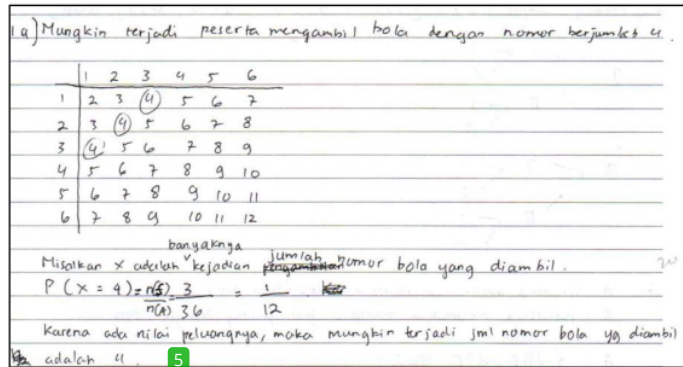 1a) Mungkin terjadi peserta mengambil bola dengan nomor berjumlah 4.
1 2 3 4 5 6
1 2 3 4 5 6 7
2 3 4 5 6 7 8
3 4 5 6 7 8 9
4 5 6 7 8 9 10
5 6 7 8 9 10 11
6 7 8 9 10 11 12
banyaknya
Misalkan x adalah kejadian jumlah nomor bola yang diambil.
P(X = 4) = n(S)/n(A) = 3/36 = 1/12
Karena ada nilai peluangnya, maka mungkin terjadi jml nomor bola yg diambil
adalah 4
5